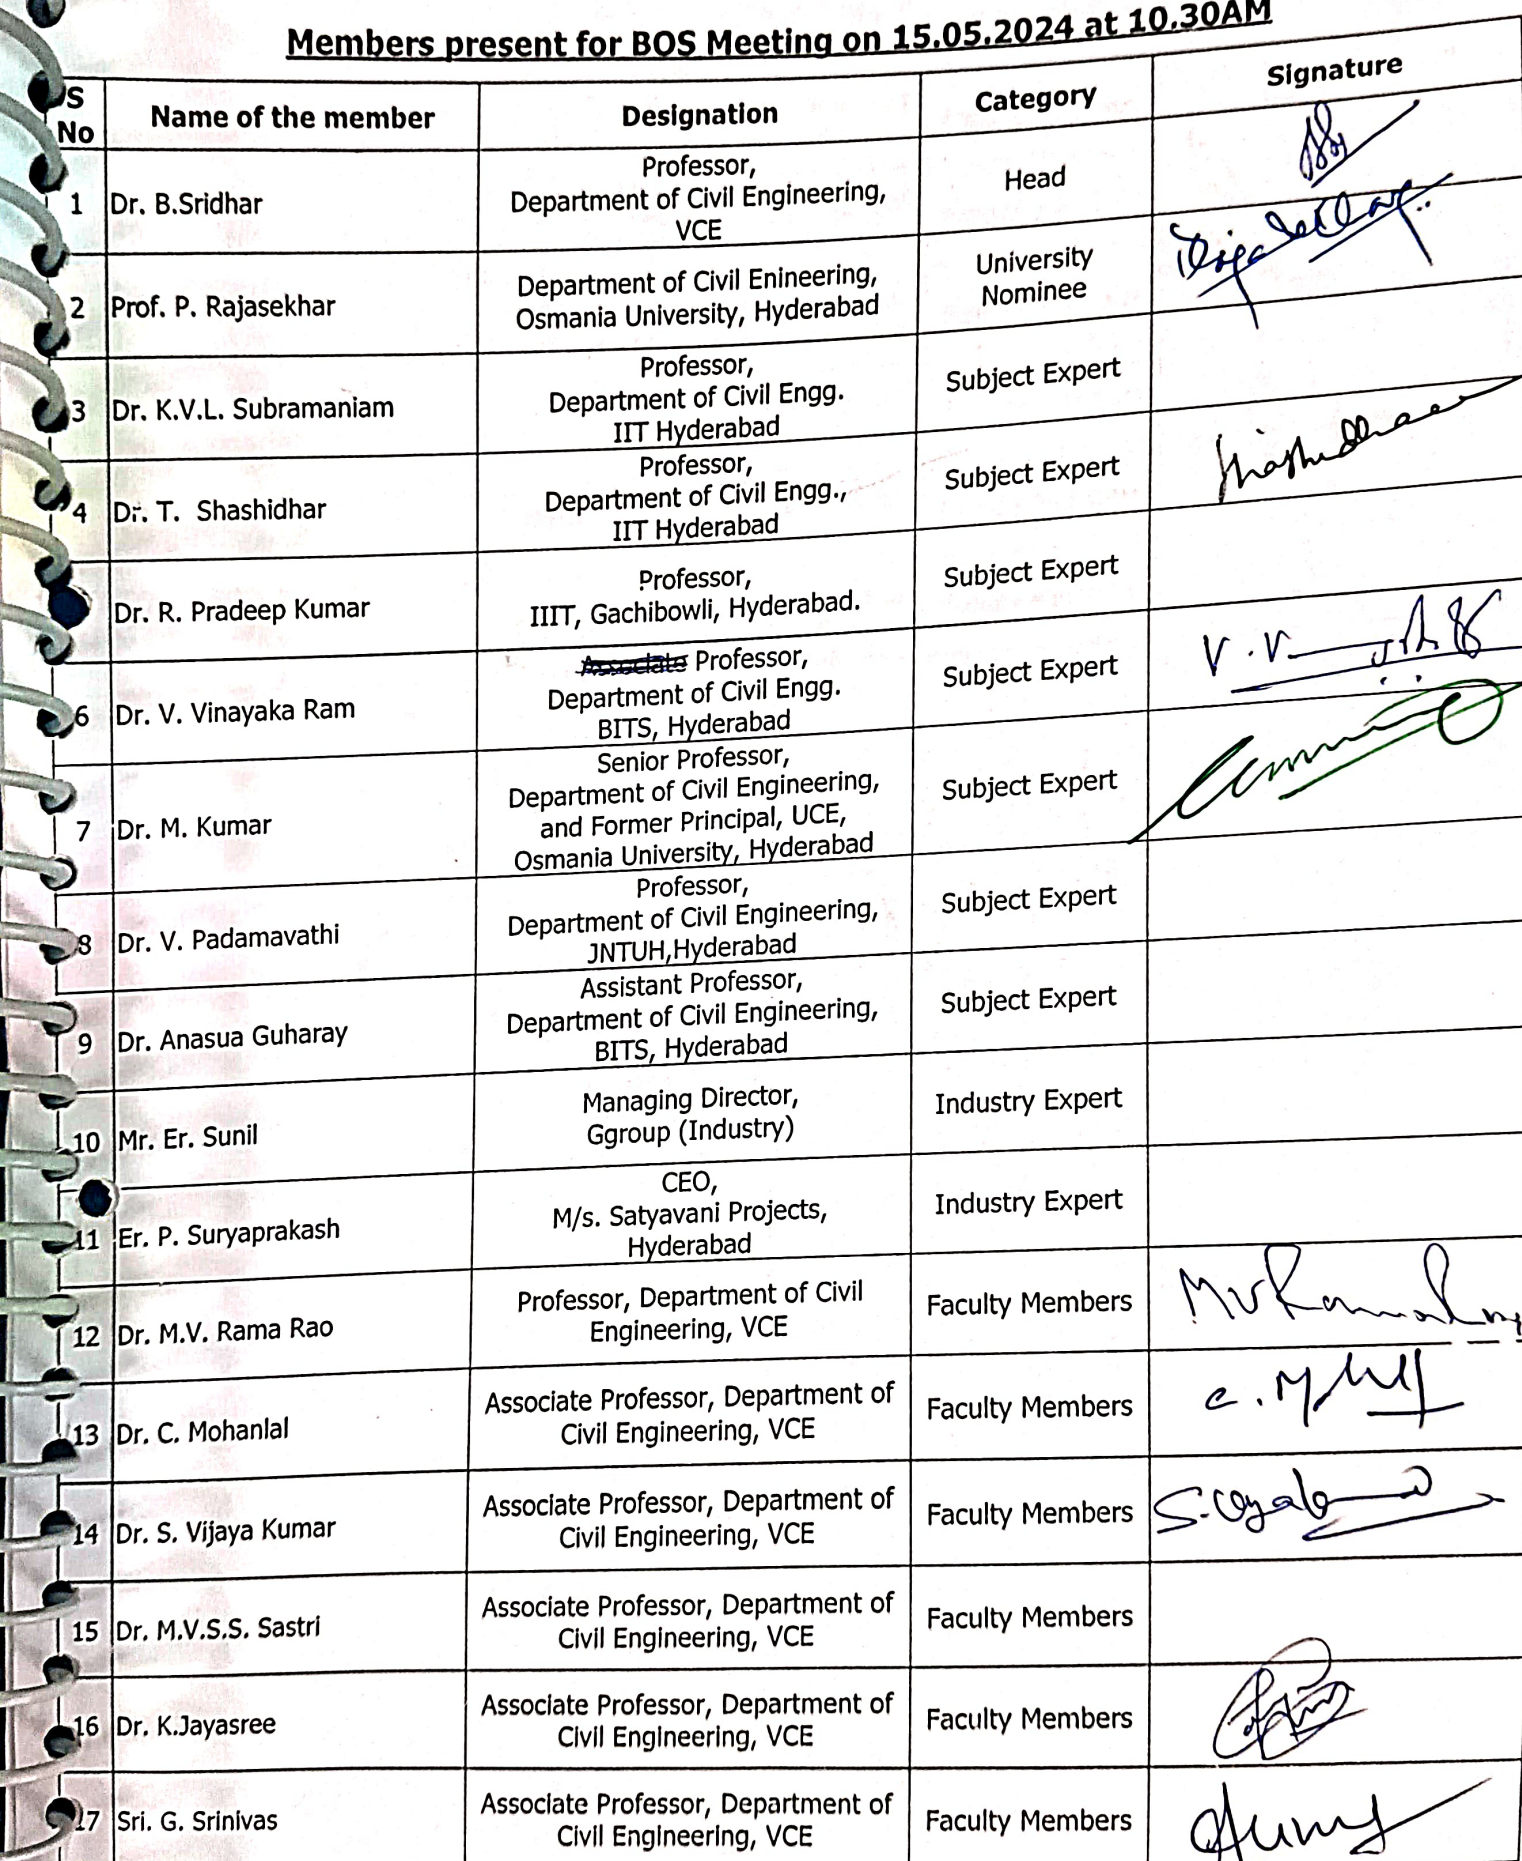 Members present for BOS Meeting on 15.05.2024 at 10.30AM
S No
Name of the member
Designation
Category
Signature
1
Dr. B.Sridhar
Professor,
Department of Civil Engineering,
VCE
Head
2
Prof. P. Rajasekhar
Department of Civil Enineering,
Osmania University, Hyderabad
University
Nominee
3
Dr. K.V.L. Subramaniam
Professor,
Department of Civil Engg.
IIT Hyderabad
Subject Expert
4
Dr. T. Shashidhar
Professor,
Department of Civil Engg.,
IIT Hyderabad
Subject Expert
Dr. R. Pradeep Kumar
Professor,
IIIT, Gachibowli, Hyderabad.
Subject Expert
6
Dr. V. Vinayaka Ram
Associate Professor,
Department of Civil Engg.
BITS, Hyderabad
Subject Expert
7
Dr. M. Kumar
Senior Professor,
Department of Civil Engineering,
and Former Principal, UCE,
Osmania University, Hyderabad
Subject Expert
8
Dr. V. Padamavathi
Professor,
Department of Civil Engineering,
JNTUH,Hyderabad
Subject Expert
9
Dr. Anasua Guharay
Assistant Professor,
Department of Civil Engineering,
BITS, Hyderabad
Subject Expert
10
Mr. Er. Sunil
Managing Director,
Ggroup (Industry)
Industry Expert
11
Er. P. Suryaprakash
CEO,
M/s. Satyavani Projects,
Hyderabad
Industry Expert
12
Dr. M.V. Rama Rao
Professor, Department of Civil
Engineering, VCE
Faculty Members
13
Dr. C. Mohanlal
Associate Professor, Department of
Civil Engineering, VCE
Faculty Members
14
Dr. S. Vijaya Kumar
Associate Professor, Department of
Civil Engineering, VCE
Faculty Members
15
Dr. M.V.S.S. Sastri
Associate Professor, Department of
Civil Engineering, VCE
Faculty Members
16
Dr. K.Jayasree
Associate Professor, Department of
Civil Engineering, VCE
Faculty Members
17
Sri. G. Srinivas
Associate Professor, Department of
Civil Engineering, VCE
Faculty Members